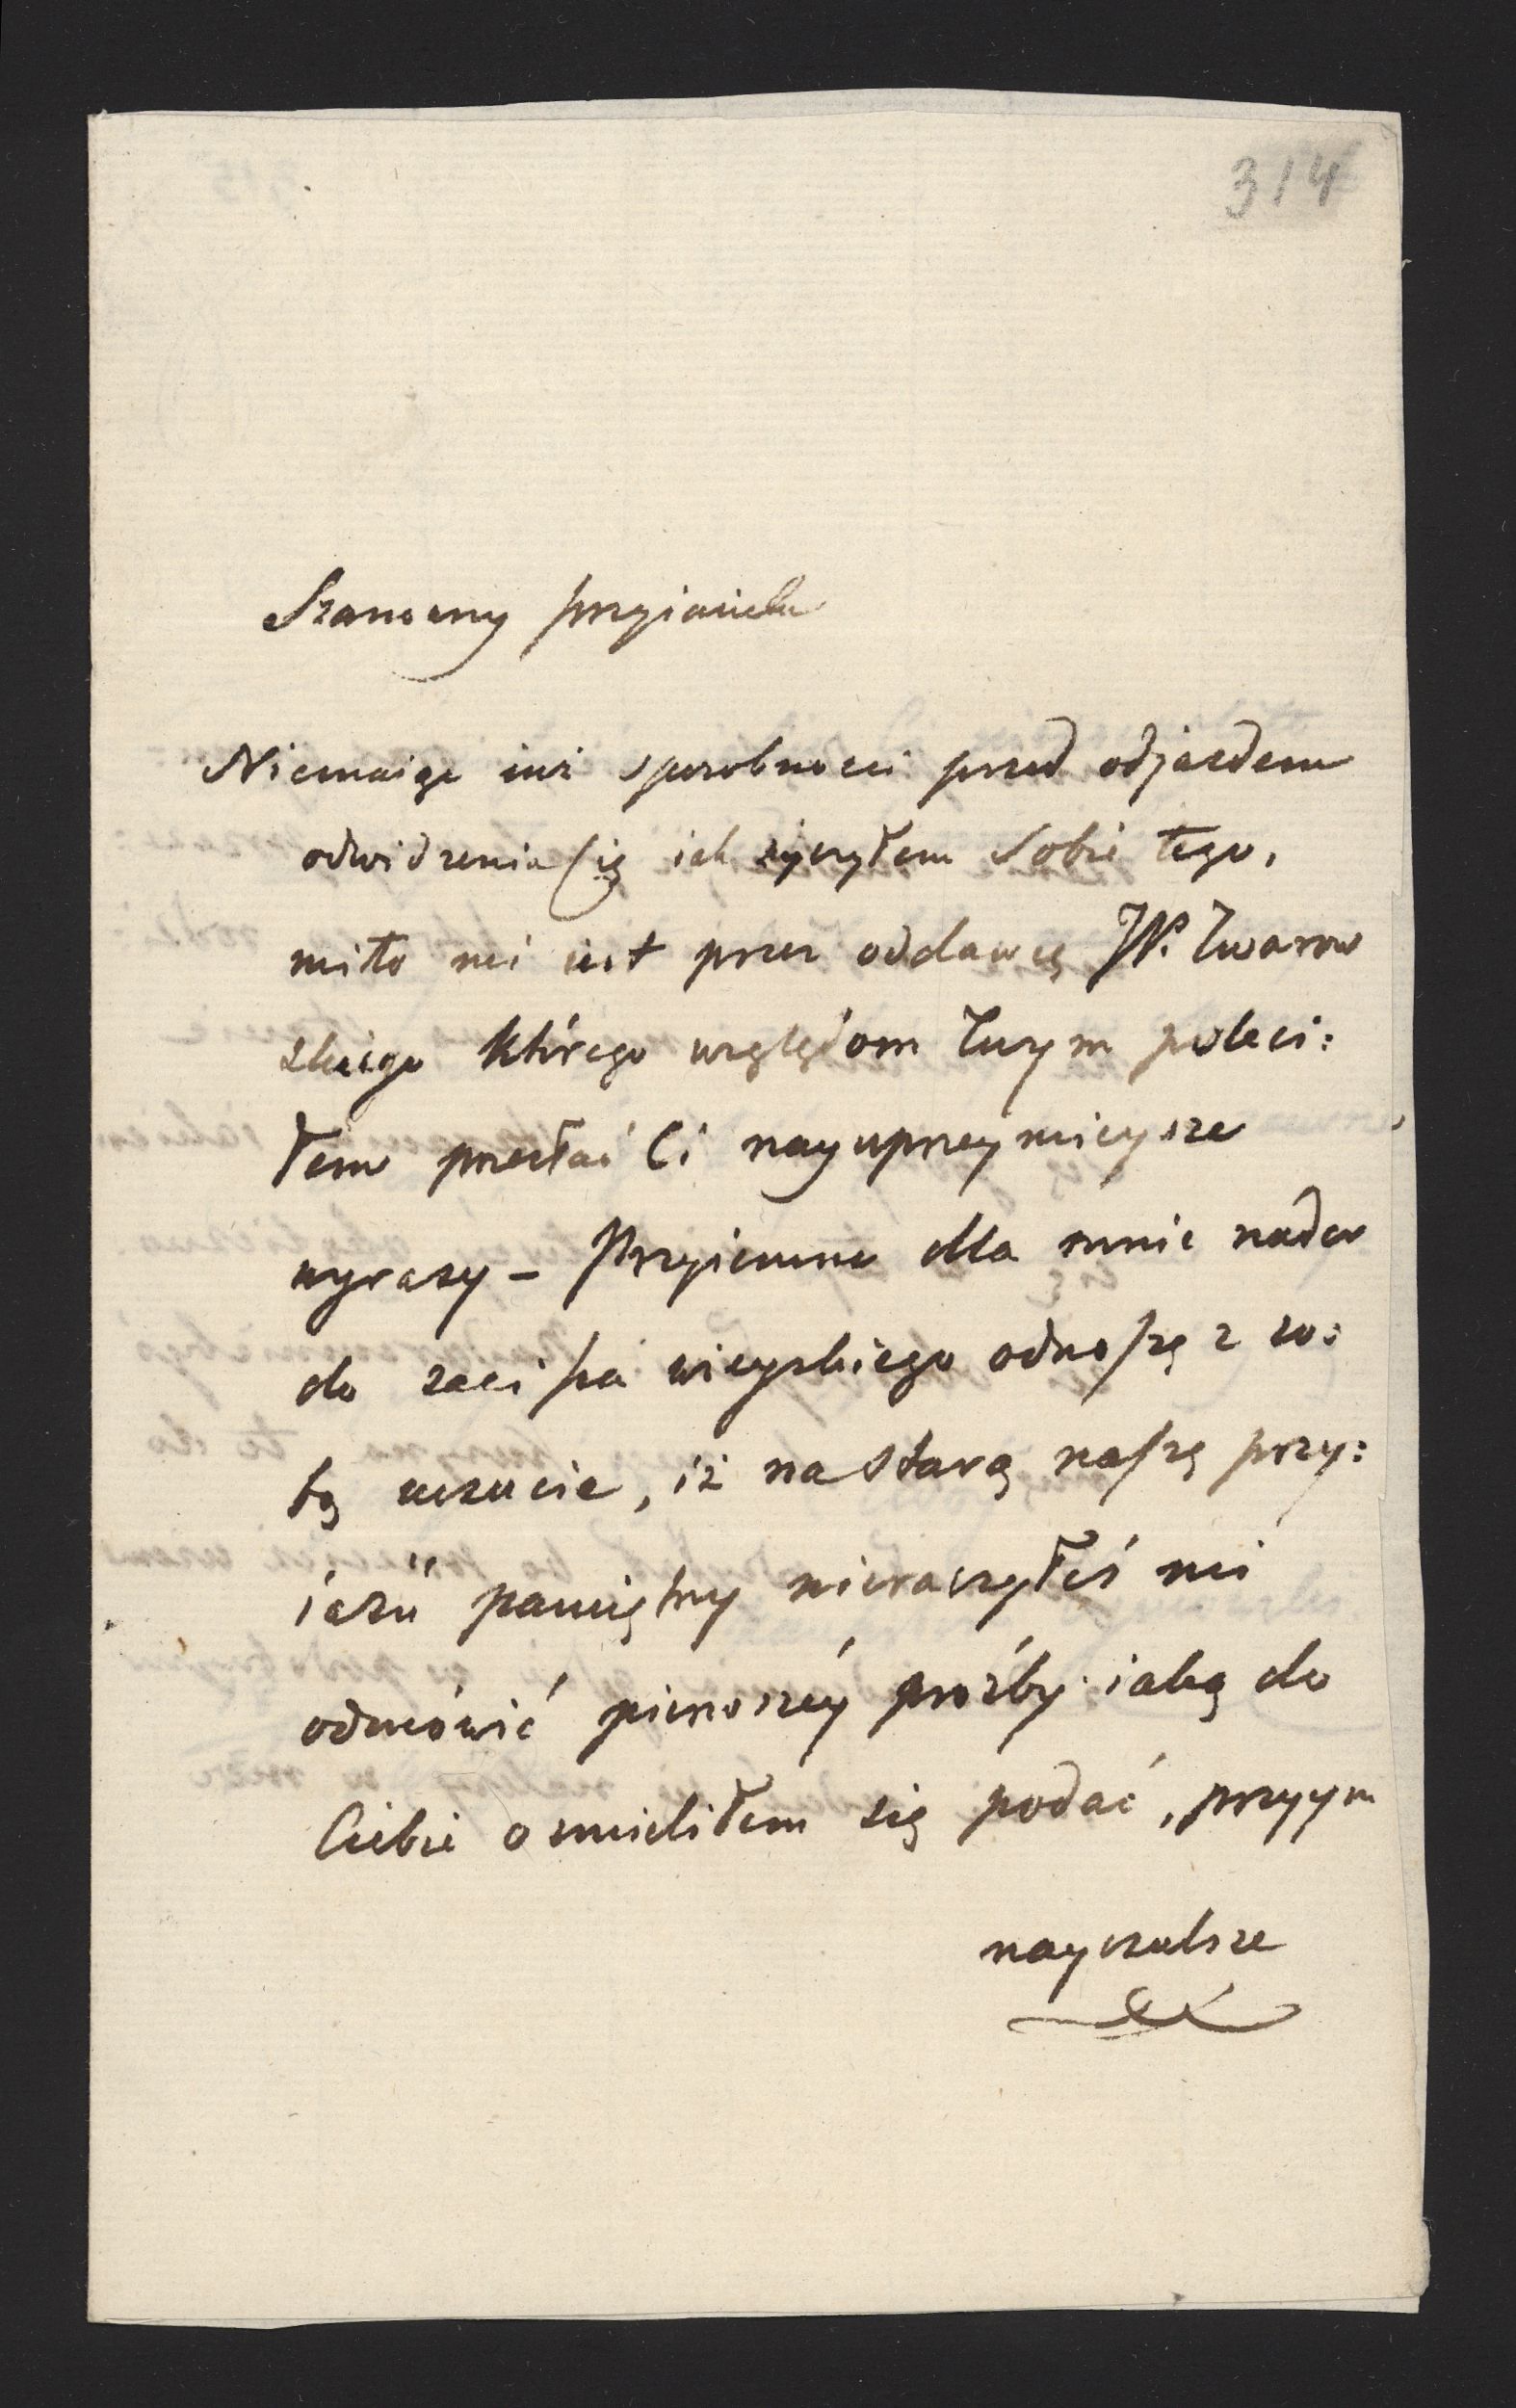 314
Szanowny przyjacielu
Niemaiąc iuż sposobności przed odjazdem
odwidzenia się iak życzyłem Sobie tego,
miło mi iest przez oddawcę JP.
którego względom Twym poleci:
łem przesłać Ci nayuprzeymieysze
wyrazy – Przyiemne dla mnie nader
do zacisza wieyskiego odnoszę z so:
bą uczucie, iż na Starą naszę przy:
iaźń pamiętny nieraczyłeś mi
odmówić pierwszéy proźby iaką do
Ciebie ośmieliłem się podać, przyym
nayczulsze